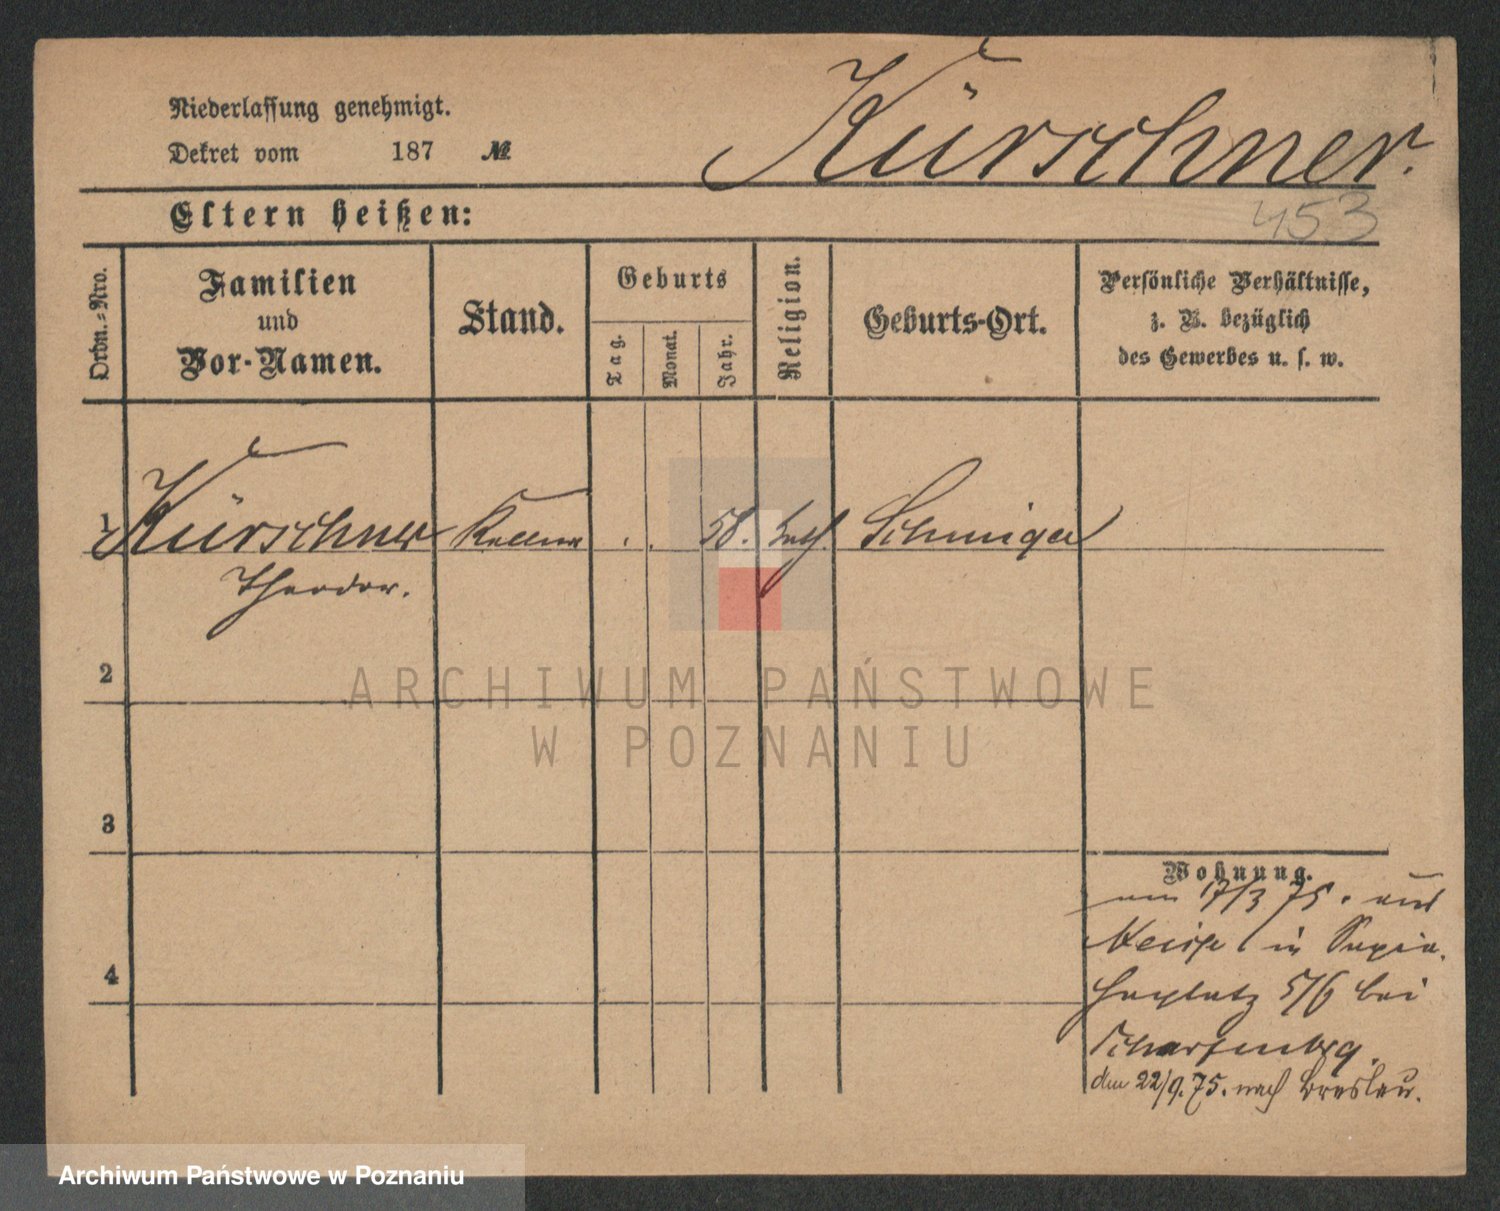 Niederlassung genehmigt.
Dekret vom 187 №
Kürschner.
453
Eltern heißen:
Ordn.-Nro.
Familien
und
Vor-Namen.
Stand.
Geburts
Tag.
Monat.
Jahr.
Religion.
Geburts-Ort.
Persönliche Verhältnisse,
z. B. bezüglich
des Gewerbes u. s. w.
1 Kürschner Kellner . . 58. kath.
Theodor.
2
3
4
Wohnung.
am 17/3 75. aus
Neisse in Sapie-
haplatz 5/6 bei
Scharfenberg.
den 22/9.75. nach Breslau.
ARCHIWUM PAŃSTWOWE
W POZNANIU
Archiwum Państwowe w Poznaniu